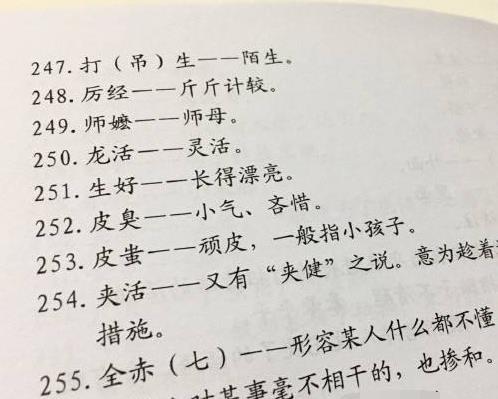 247. 打（吊）生——陌生。
248. 厉经——斤斤计较。
249. 师嬷——师母。
250. 龙活——灵活。
251. 生好——长得漂亮。
252. 皮臭——小气、吝惜。
253. 皮蚩——顽皮，一般指小孩子。
254. 夹活——又有“夹健”之说。意为趁着
措施。
255. 全赤（七）——形容某人什么都不懂
对某事毫不相干的，也掺和。